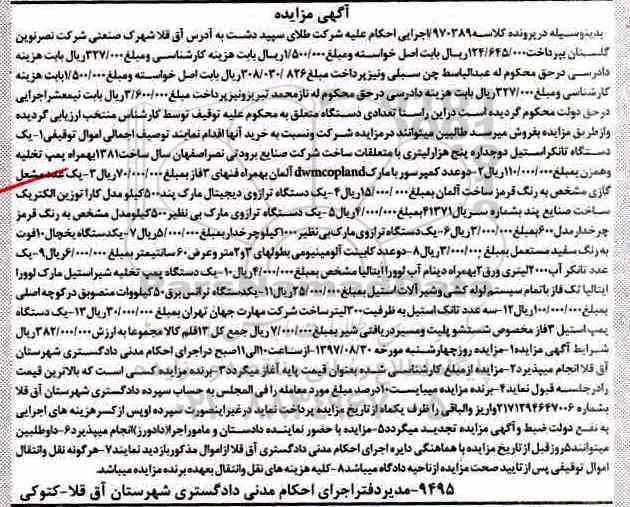 آگهی مزایده
بدینوسیله در پرونده کلاسه ۹۷۰۳۸۹/اجرایی احکام علیه شرکت طلای سپید دشت به آدرس آق قلا شهرک صنعتی شرکت نصر نوین
گلستان بپرداخت ۱۲۴/۶۴۵/۰۰۰ ریال بابت اصل خواسته ومبلغ ۱/۵۰۰/۰۰۰ ریال بابت هزینه کارشناسی ومبلغ ۳۲۷/۰۰۰ ریال بابت هزینه
دادرسی درحق محکوم له عبدالباسط چن سبلی ونیز پرداخت مبلغ ۳۰۸/۰۳۰/۸۲۶ ریال بابت اصل خواسته ومبلغ ۱/۵۰۰/۰۰۰ بابت هزینه
کارشناسی ومبلغ ۳۲۷/۰۰۰ ریال بابت هزینه دادرسی درحق محکوم له نازمحمد تبریز ونیز پرداخت مبلغ ۳/۶۰۰/۰۰۰ ریال بابت نیمعشر اجرایی
درحق دولت محکوم گردیده است در این راستا تعدادی دستگاه متعلق به محکوم علیه توقیف توسط کارشناس منتخب ارزیابی گردیده
واز طریق مزایده بفروش میرسد طالبین میتوانند در مزایده شرکت ونسبت به خرید آنها اقدام نمایند توصیف اجمالی اموال توقیفی ۱-یک
دستگاه تانکر استیل دوجداره پنج هزار لیتری با متعلقات ساخت شرکت صنایع برودتی نصر اصفهان سال ساخت ۱۳۸۱ بهمراه پمپ تخلیه
وهمزن بمبلغ ۱۱۰/۰۰۰/۰۰۰ ریال ۲-دوعدد کمپرسور با مارک dwmcopland آلمان بهمراه فنهای ۳فاز بمبلغ ۷۰/۰۰۰/۰۰۰ ریال ۳-یک عدد مشعل
گازی مشخص به رنگ قرمز ساخت آلمان بمبلغ ۱۵/۰۰۰/۰۰۰ ریال ۴-یک دستگاه ترازوی دیجیتال مارک پند ۵۰۰ کیلو مدل کارا توزین الکتریک
ساخت صنایع پند بشماره سریال ۴۱۳۷۱ بمبلغ ۴/۰۰۰/۰۰۰ ریال ۵-یک دستگاه ترازوی مارک بی نظیر ۵۰۰ کیلو مدل مشخص به رنگ قرمز
چرخدار مدل ۶۰۰ بمبلغ ۳/۰۰۰/۰۰۰ ریال ۶-یک دستگاه ترازوی مارک بی نظیر ۱۰۰۰ کیلو چرخدار بمبلغ ۵/۰۰۰/۰۰۰ ریال ۷-یکدستگاه یخچال ۱۰فوت
به رنگ سفید مستعمل بمبلغ ۳/۰۰۰/۰۰۰ ریال ۸-دوعدد کابینت آلومینیومی بطولهای ۳و۲متر وعرض ۶۰ سانتیمتر بمبلغ ۶/۰۰۰/۰۰۰ ریال ۹-یک
عدد تانکر آب ۲۰۰۰ لیتری ورق ۲ بهمراه دینام آب لوورا ایتالیا مشخص بمبلغ ۴/۰۰۰/۰۰۰ ریال ۱۰-یک دستگاه پمپ تخلیه شیر استیل مارک لوورا
ایتالیا تک فاز با تمام سیستم لوله کشی وشیرآلات استیل بمبلغ ۲۵/۰۰۰/۰۰۰ ریال ۱۱-یکدستگاه ترانس برق ۵۰ کیلووات منصوب در کوچه اصلی
بمبلغ ۱۰۰/۰۰۰/۰۰۰ ریال ۱۲-سه عدد تانک استیل به ظرفیت ۲۰۰ لیتر ساخت شرکت مهارت جهان تهران بمبلغ ۳۰/۰۰۰/۰۰۰ ریال ۱۳-یک دستگاه
پمپ استیل ۳فاز مخصوص شستشو پلیت ومسیر دریافتی شیر بمبلغ ۷/۰۰۰/۰۰۰ ریال جمع کل ۱۳ قلم کالا مجموعا به ارزش ۳۸۲/۰۰۰/۰۰۰ ریال
شرایط آگهی مزایده ۱-مزایده روز چهارشنبه مورخه ۱۳۹۷/۰۸/۳۰ از ساعت ۱۰ الی ۱۱ صبح در اجرای احکام مدنی دادگستری شهرستان
آق قلا انجام میپذیرد ۲-مزایده از مبلغ کارشناسی شده بعنوان قیمت پایه آغاز میگردد ۳-برنده مزایده کسی است که بالاترین قیمت
رادر جلسه قبول نماید ۴-برنده مزایده میبایست ۱۰ درصد مبلغ مورد معامله را فی المجلس به حساب سپرده دادگستری شهرستان آق قلا
بشماره ۲۱۷۱۲۹۴۶۴۷۰۰۶ واریز والباقی را ظرف یکماه از تاریخ مزایده پرداخت نماید در غیر اینصورت سپرده او پس از کسر هزینه های اجرایی
به نفع دولت ضبط وآگهی مزایده تجدید میگردد ۵-مزایده با حضور نماینده دادستان و مامور اجرا(دادورز) انجام میپذیرد ۶-داوطلبین
میتوانند ۵ روز قبل از تاریخ مزایده با هماهنگی دایره اجرای احکام مدنی دادگستری آق قلا از اموال مذکور بازدید نمایند ۷-هر گونه نقل وانتقال
اموال توقیفی پس از تایید صحت مزایده از ناحیه دادگاه میباشد ۸-کلیه هزینه های نقل وانتقال بعهده برنده مزایده میباشد.
۹۴۹۵-مدیر دفتر اجرای احکام مدنی دادگستری شهرستان آق قلا-کتوکی